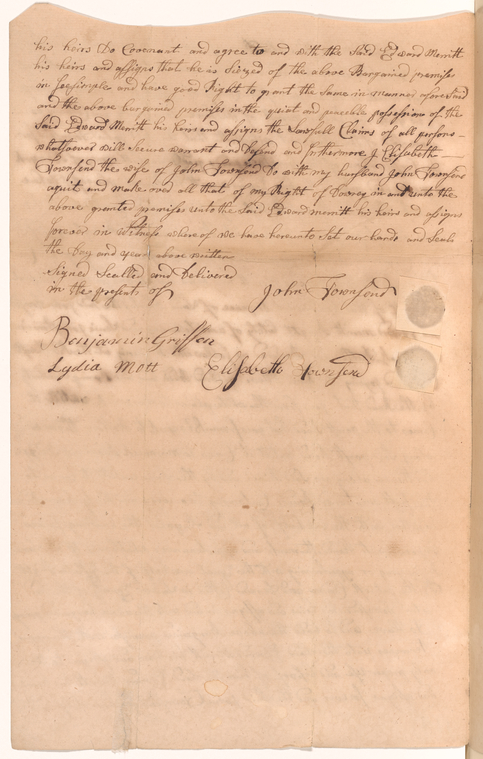 his heirs Do Covenant and agree to and with the Said Edward Merritt
his heirs and assigns that he is Siezed of the above Bargained premises
in feesimple and have good Right to grant the same in manner aforesaid
and the above bargained premises in the quiat and peacable possession of the
Said Edward Merritt his heirs and assigns the Lawfull Claims of all persons
whatsoever will Secure warrant and Defend and furthermore I Elisabeth
Townsend the wife of John Townsend Do with my husband John Townsend
and make over all that of my Right of Dowrey in and unto the
above granted premises unto the Said Edward merritt his heirs and assigns
forever in Witness where of we have hereunto Set our hands and Seals
the Day and year above written
Signed Sealled and Delivered
in the presents of John Townsend
Benjamin Griffen
Lydia Mott Elisabeth Townsend